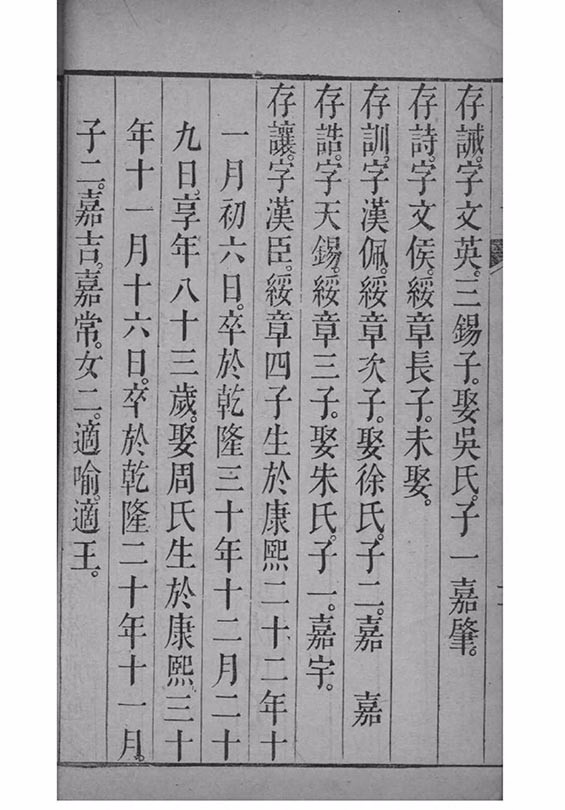 存誡。字文英。三錫子。娶吳氏。子一嘉肇。
存詩。字文侯。綏章長子。未娶。
存訓。字漢佩。綏章次子。娶徐氏。子二。嘉　嘉
存誥。字天錫。綏章三子。娶朱氏。子一。嘉宇。
存讓。字漢臣。綏章四子生於康熙二十二年十
一月初六日。卒於乾隆三十年十二月二十
九日。享年八十三歲。娶周氏生於康熙三十
年十一月十六日。卒於乾隆二十年十一月。
子二。嘉吉。嘉常。女二。適喻。適王。